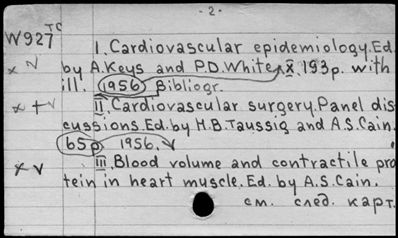 - 2 -
W927 TC
I. Cardiovascular epidemiology. Ed.
by A. Keys and P.D. White, x. 193p. with
ill. 1956 Bibliogr.
II. Cardiovascular surgery. Panel dis
cussions. Ed. by H.B. Taussig and A.S. Cain.
65p 1956. v
III. Blood volume and contractile pro
tein in heart muscle. Ed. by A.S. Cain.
см. след. карт.